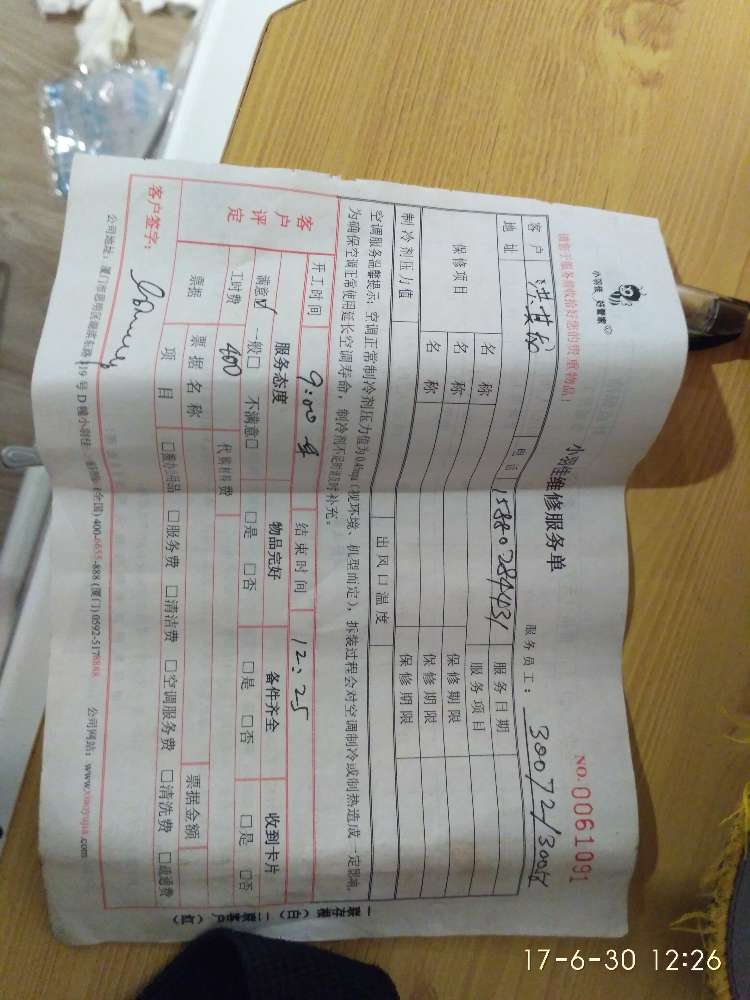 小羽佳 好管家
小羽佳维修服务单
NO. 0061091
请您于服务前收拾好您的贵重物品!
服务员工: 30072/300
客户 洪 电话 服务日期
地址 服务项目
保修项目 名称 保修期限
名称 保修期限
名称 保修期限
制冷剂压力值 出风口温度
空调服务温馨提示: 空调正常制冷剂压力值为0.45mpa (视环境、机型而定), 拆装过程会对空调制冷或制热造成一定影响,
为确保空调正常使用延长空调寿命, 制冷剂不足时请及时补充。
开工时间 9:00 结束时间 12:25
客户评定 服务态度 物品完好 备件齐全 收到卡片
满意☑ 一般□ 不满意□ □是 □否 □是 □否 □是 □否
工时费 400 代购材料费
票据 票据名称 票据金额
项目 □服务费 □清洁费 □空调服务费 □清洗费 □疏通费
客户签字:
公司地址: 厦门市思明区湖滨东路319号D幢小羽佳 (全国) 400-6655-888 (厦门) 0592-5178888 公司网站: www.xiaoyujia.com
一联存根(白) 二联客户(红)
17-6-30 12:26